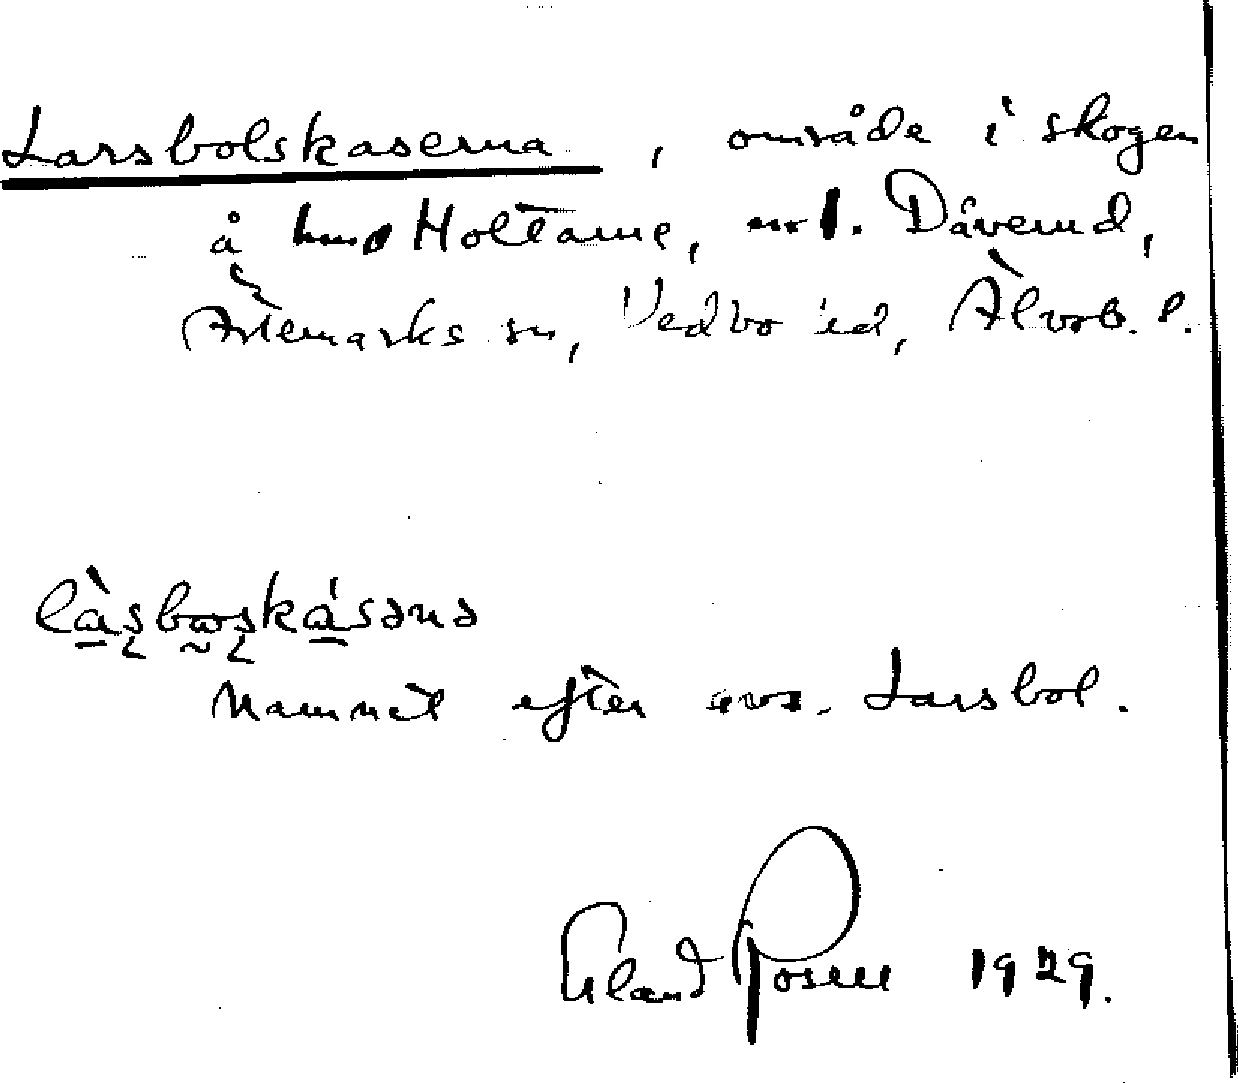 Larsbolskaserna, område i skogen
å hmd Holtarne, nv l. Dåverud,
Årtemarks sn, Vedbo hd, Älvsb. l.
làsboskásənə
Namnet efter ovs. Larsbol.
Erland Rosell 1929.